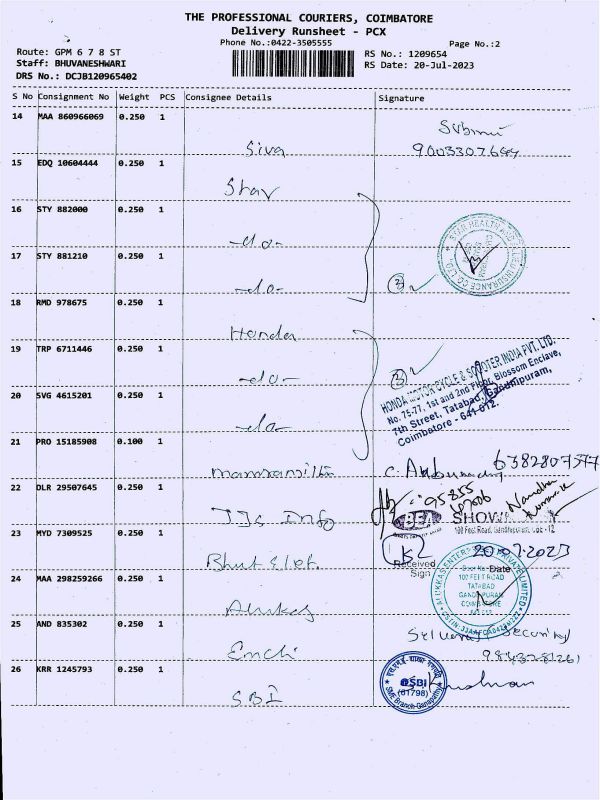 THE PROFESSIONAL COURIERS, COIMBATORE
Delivery Runsheet - PCX
Phone No.:0422-3505555
Page No.:2
Route: GPM 6 7 8 ST
RS No.: 1209654
Staff: BHUVANESHWARI
RS Date: 20-Jul-2023
DRS No.: DCJB120965402
S No Consignment No Weight PCS Consignee Details Signature
14 MAA 860966069 0.250 1
Siva
15 EDQ 10604444 0.250 1
Star
16 STY 882000 0.250 1
-do-
17 STY 881210 0.250 1
-do-
3
18 RMD 978675 0.250 1
Honda
19 TRP 6711446 0.250 1
-do-
3
HONDA MOTOR CYCLE & SCOOTER INDIA PVT. LTD.
No. 75-77, 1st and 2nd Floor, Blossom Enclave,
7th Street, Tatabad, Gandhipuram,
Coimbatore - 641 012.
20 SVG 4615201 0.250 1
-do-
21 PRO 15185908 0.100 1
6382807577
22 DLR 29507645 0.250 1
TJs Info
23 MYD 7309525 0.250 1
100 Feet Road, Gandhipuram, Cbe - 12
20.07.2023
Received
Sign
Date
24 MAA 298259266 0.250 1
ALUKKAS ENTERPRISES PRIVATE LIMITED
100 FEET ROAD
TATABAD
GANDHIPURAM
COIMBATORE
25 AND 835302 0.250 1
Security
26 KRR 1245793 0.250 1
SBI
SBI
(61798)